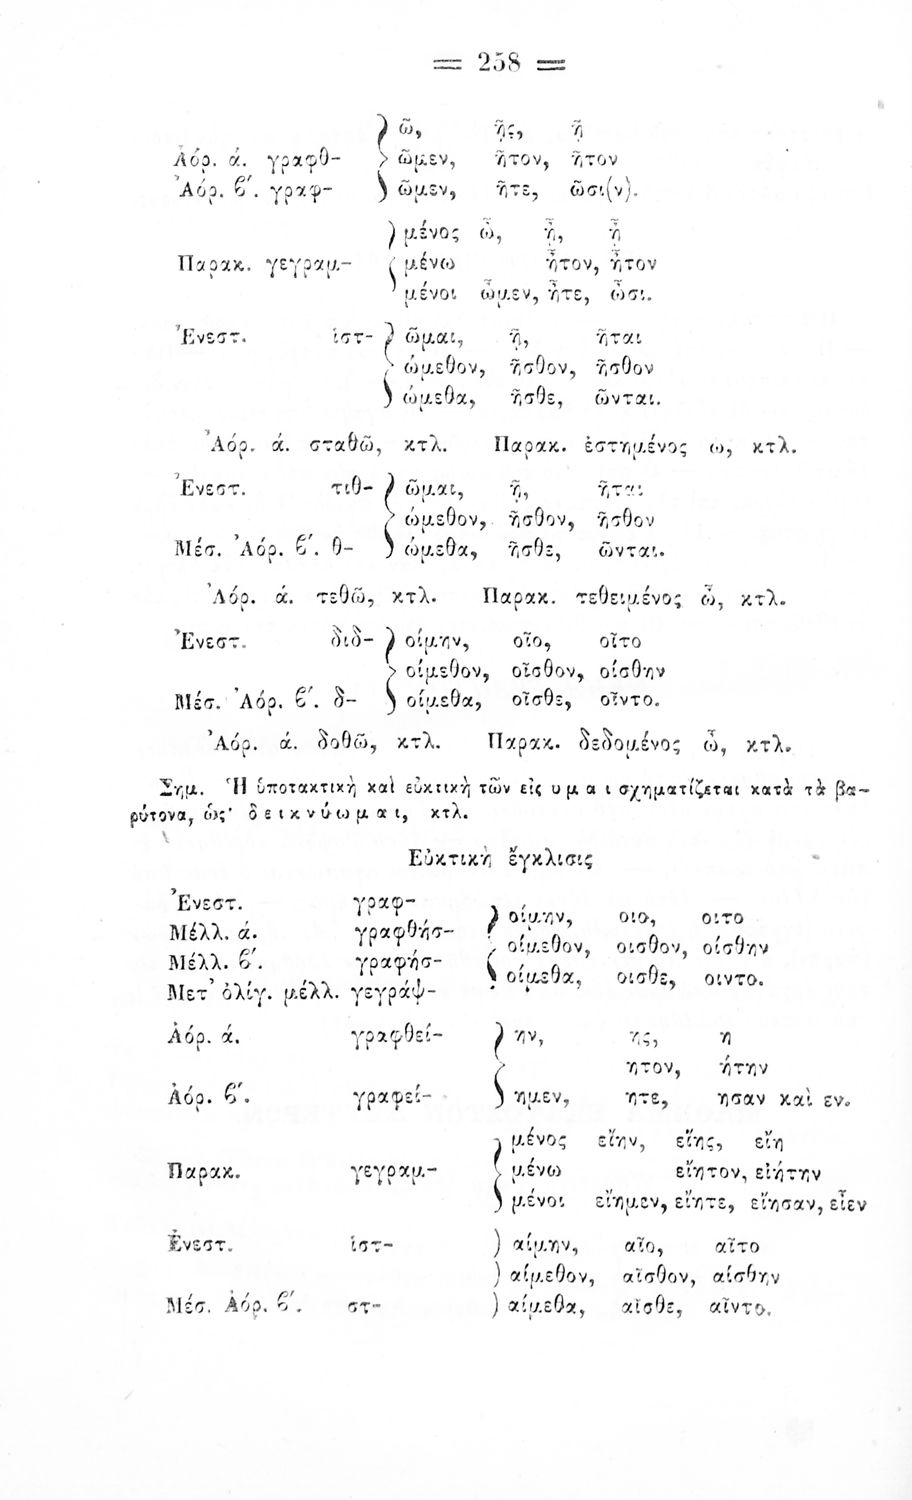 = 258 =
ῶ, ῇς, ῇ
Ἀόρ. ά. γραφθ- ῶμεν, ῆτον, ῆτον
Ἀόρ. β′. γραφ- ῶμεν, ῆτε, ῶσι(ν).
μένος ὦ, ᾖ, ᾖ
Παρακ. γεγραμ- μένω ἦτον, ἦτον
μένοι ὦμεν, ἦτε, ὦσι.
Ἐνεστ. ἱστ- ῶμαι, ῇ, ῆται
ώμεθον, ῆσθον, ῆσθον
ώμεθα, ῆσθε, ῶνται.
Ἀόρ. ά. σταθῶ, κτλ. Παρακ. ἑστημένος ω, κτλ.
Ἐνεστ. τιθ- ῶμαι, ῇ, ῆται
ώμεθον, ῆσθον, ῆσθον
Μέσ. Ἀόρ. β′. θ- ώμεθα, ῆσθε, ῶνται.
Ἀόρ. ά. τεθῶ, κτλ. Παρακ. τεθειμένος ὦ, κτλ.
Ἐνεστ. διδ- οίμην, οῖο, οῖτο
οίμεθον, οῖσθον, οίσθην
Μέσ. Ἀόρ. β′. δ- οίμεθα, οῖσθε, οῖντο.
Ἀόρ. ά. δοθῶ, κτλ. Παρακ. δεδομένος ὦ, κτλ.
Σημ. Ἡ ὑποτακτικὴ καὶ εὐκτικὴ τῶν εἰς υμαι σχηματίζεται κατὰ τὰ βα-
ρύτονα, ὡς· δεικνύωμαι, κτλ.
Εὐκτικὴ ἔγκλισις
Ἐνεστ. γραφ- οίμην, οιο, οιτο
Μέλλ. ά. γραφθήσ-
Μέλλ. β′. γραφήσ- οίμεθον, οισθον, οίσθην
Μετ' ὀλίγ. μέλλ. γεγράψ- οίμεθα, οισθε, οιντο.
Ἀόρ. ά. γραφθεί- ην, ης, η
ητον, ήτην
Ἀόρ. β′. γραφεί- ημεν, ητε, ησαν καὶ εν.
μένος εἴην, εἴης, εἴη
Παρακ. γεγραμ- μένω εἴητον, εἰήτην
μένοι εἴημεν, εἴητε, εἴησαν, εἶεν
Ἐνεστ. ἱστ- αίμην, αῖο, αῖτο
αίμεθον, αῖσθον, αίσθην
Μέσ. Ἀόρ. β′. στ- αίμεθα, αῖσθε, αῖντο.